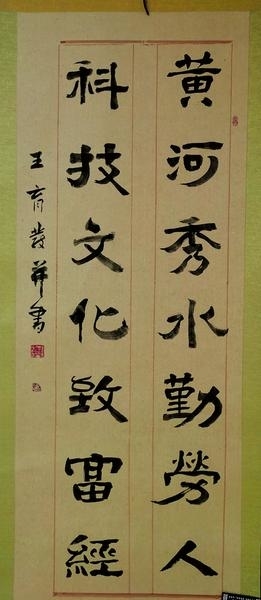 黄河秀水勤勞人
科技文化致富經
王育發并書